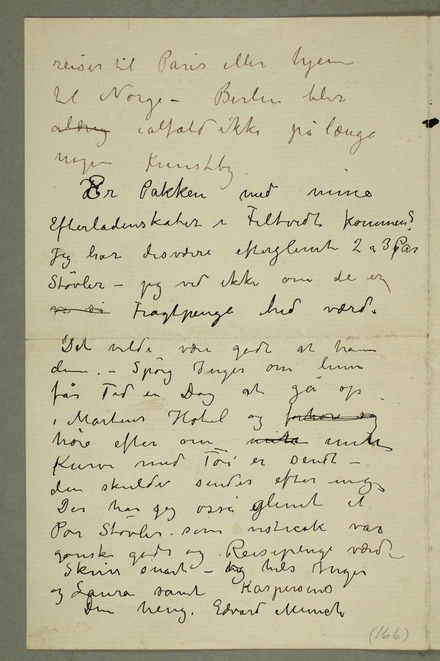 reiser til Paris eller hjem
til Norge – Berlin blir
aldrig ialfald ikke på længe
nogen Kunstby.
Er Pakken med mine
Efterladenskaber i Filtvedt kommen?
Jeg har desværre efterglemt 2 a 3 Par
Støvler – jeg ved ikke om de er
Fragtpenge hed værd.
Det vilde være godt at have
dem. – Spørg Inger om hun
får Tid en Dag at gå op
i Martens Hotel og forhøre sig
høre efter om mit
Kurv med Tøi er sendt –
den skulde sendes efter mig
Der har jeg også glemt et
Par Støvler som netteste var
ganske gode og Reisepenge værdt
Skriv snart – og hils Inger
og Laura samt Kaspersens
Din heng. Edvard Munch
(166)